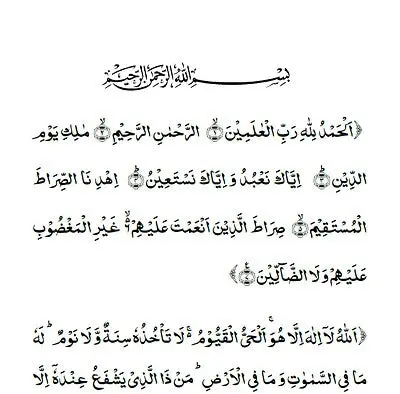 بِسْمِ اللهِ الرَّحْمٰنِ الرَّحِيْمِ
﴿اَلْحَمْدُ لِلّٰهِ رَبِّ الْعٰلَمِيْنَ ﴿١﴾ الرَّحْمٰنِ الرَّحِيْمِ ﴿٢﴾ مٰلِكِ يَوْمِ
الدِّيْنِ ﴿٣﴾ اِيَّاكَ نَعْبُدُ وَ اِيَّاكَ نَسْتَعِيْنُ ﴿٤﴾ اِهْدِ نَا الصِّرَاطَ
الْمُسْتَقِيْمَ ﴿٥﴾ صِرَاطَ الَّذِيْنَ اَنْعَمْتَ عَلَيْهِمْ ﴿٦﴾ غَيْرِ الْمَغْضُوْبِ
عَلَيْهِمْ وَلَا الضَّآلِّيْنَ ﴿٧﴾﴾
﴿اَللهُ لَآ اِلٰهَ اِلَّا هُوَ ۚ اَلْحَيُّ الْقَيُّوْمُ ۚ لَا تَأْخُذُهٗ سِنَةٌ وَّلَا نَوْمٌ ؕ لَهٗ
مَا فِي السَّمٰوٰتِ وَ مَا فِي الْاَرْضِ ؕ مَنْ ذَا الَّذِيْ يَشْفَعُ عِنْدَهٗٓ اِلَّا